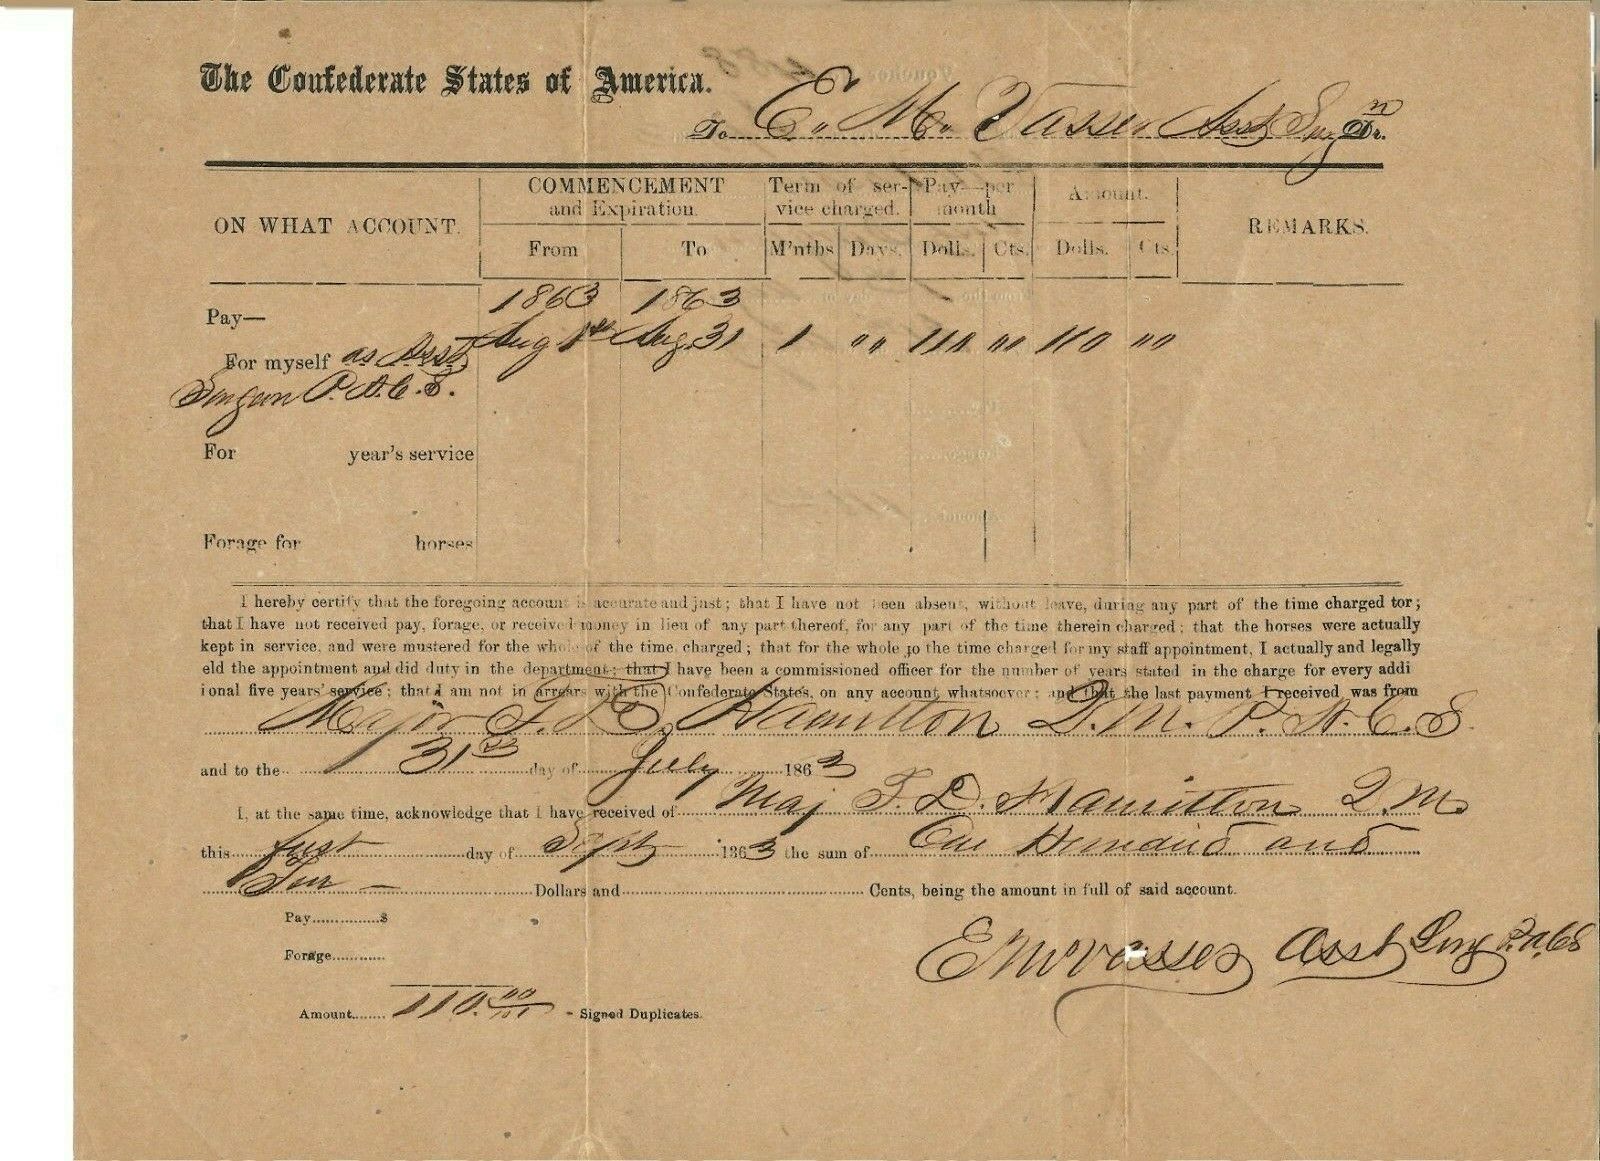 The Confederate States of America.
To E. M. Vasser Asst Surgn Dr.
ON WHAT ACCOUNT. COMMENCEMENT and Expiration. Term of ser-vice charged. Pay—per month Amount. REMARKS.
From To M'nths Days. Dolls. Cts. Dolls. Cts.
1863 1863
Pay—
Aug 1st Aug. 31 1 " 110 " 110 "
For myself as Asst
Surgeon P. A. C. S.
For year's service
Forage for horses
I hereby certify that the foregoing account is accurate and just; that I have not been absent, without leave, during any part of the time charged tor;
that I have not received pay, forage, or received money in lieu of any part thereof, for any part of the time therein charged; that the horses were actually
kept in service, and were mustered for the whole of the time charged; that for the whole jo the time charged for my staff appointment, I actually and legally
eld the appointment and did duty in the department; that I have been a commissioned officer for the number of years stated in the charge for every addi
ional five years' service; that I am not in arrears with the Confederate States, on any account whatsoever; and that the last payment I received, was from
Major T. D. Hamilton Q. M. P. A. C. S.
and to the 31st day of July 1863
I, at the same time, acknowledge that I have received of Maj T. D. Hamilton Q. M.
this first day of Sept 1863 the sum of One Hundred and
Ten — Dollars and Cents, being the amount in full of said account.
Pay $
Forage
E M Vasser Asst Surg P. A. C S
Amount 110.00/100 - Signed Duplicates.